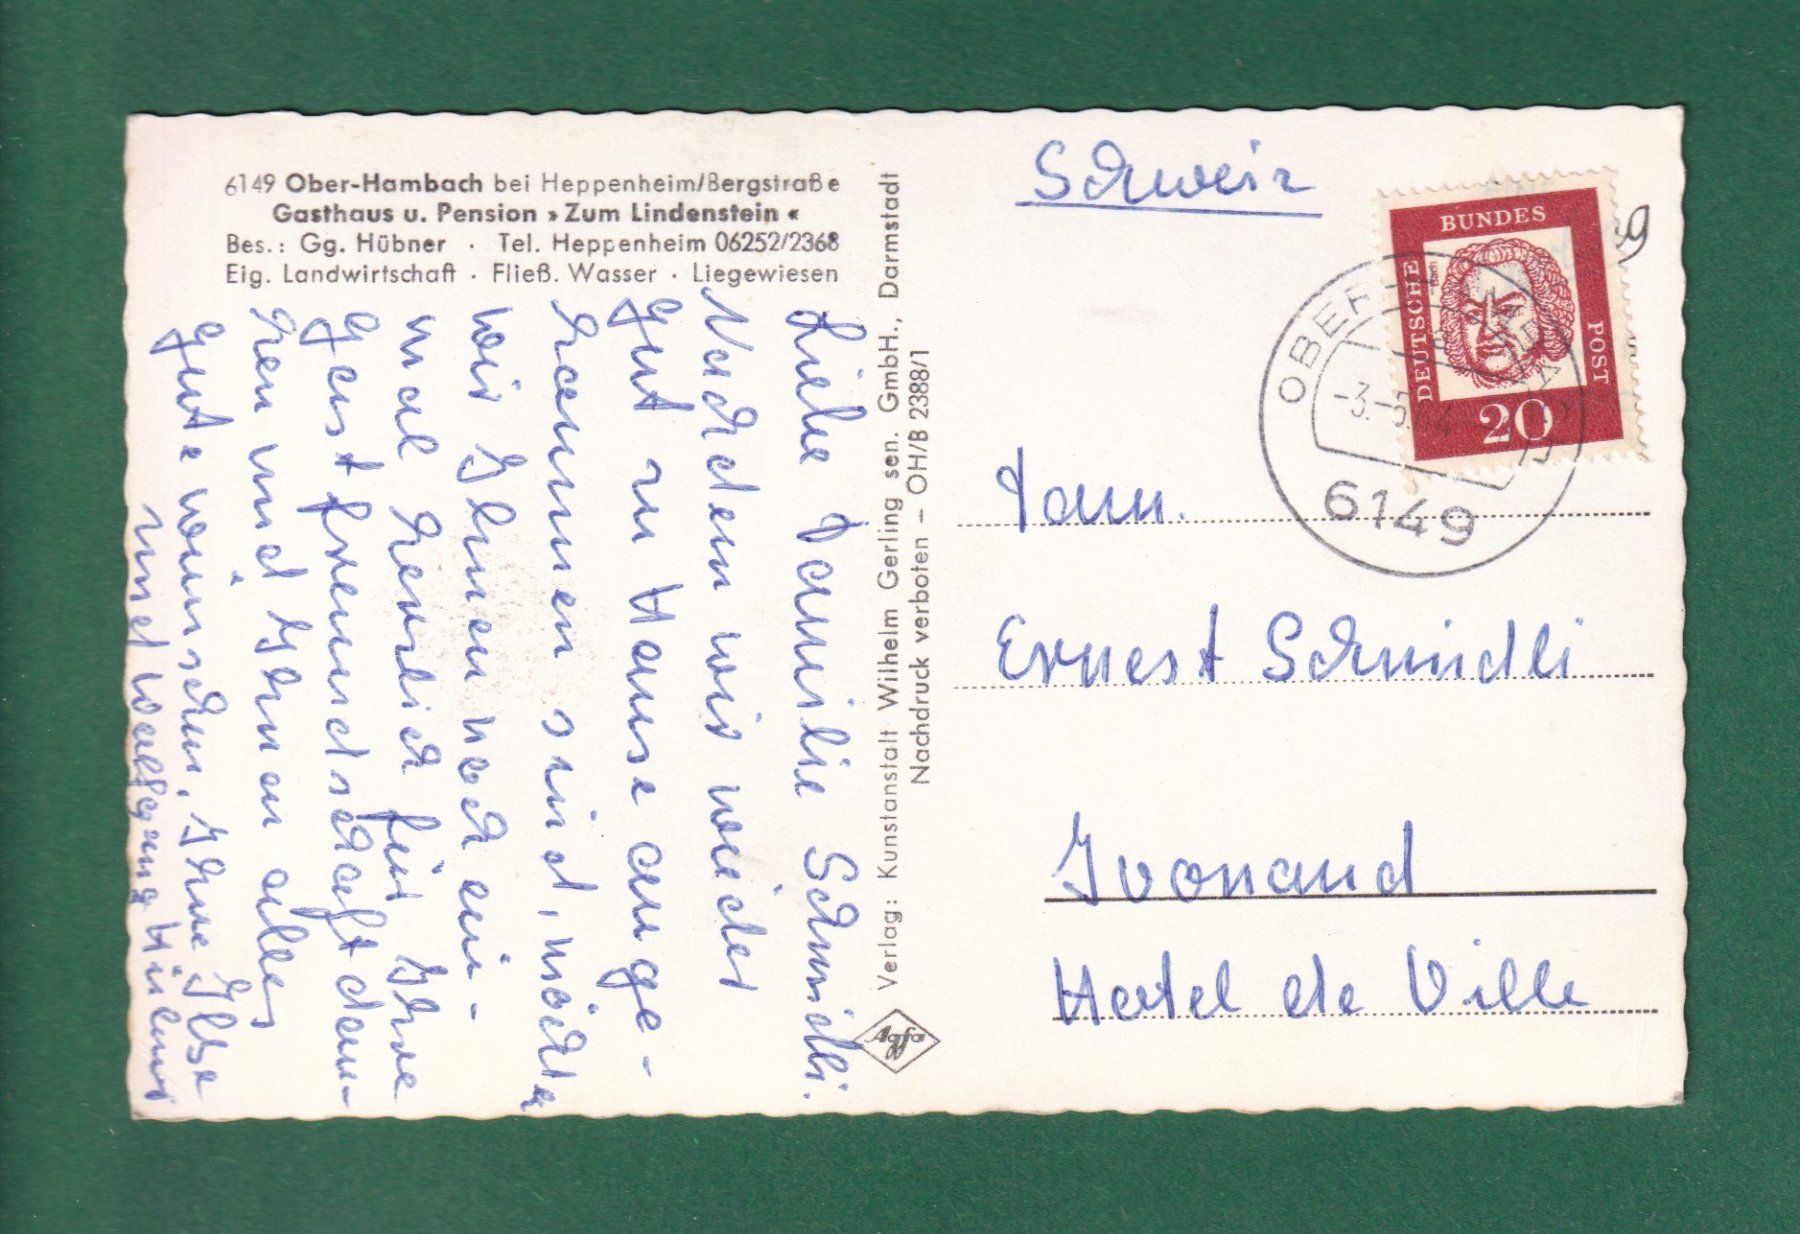 6149 Ober-Hambach bei Heppenheim/Bergstraße
Gasthaus u. Pension » Zum Lindenstein «
Bes.: Gg. Hübner · Tel. Heppenheim 06252/2368
Eig. Landwirtschaft · Fließ. Wasser · Liegewiesen
Liebe Familie Schmidli.
Nachdem wir wieder
gut zu Hause ange-
kommen sind, möchten
wir Ihnen noch ein-
mal herzlich für Ihre
Gastfreundschaft dan-
ken und Ihnen alles
gute wünschen, Ihre Ilse
und Wolfgang Hübner
Verlag: Kunstanstalt Wilhelm Gerling sen. GmbH., Darmstadt
Nachdruck verboten – OH/B 2388/1
Agfa
Schweiz
DEUTSCHE
BUNDES
POST
Bach
20
OBER-
-3.-5.
6149
Fam.
Ernest Schmidli
Yvonand
Hotel de Ville